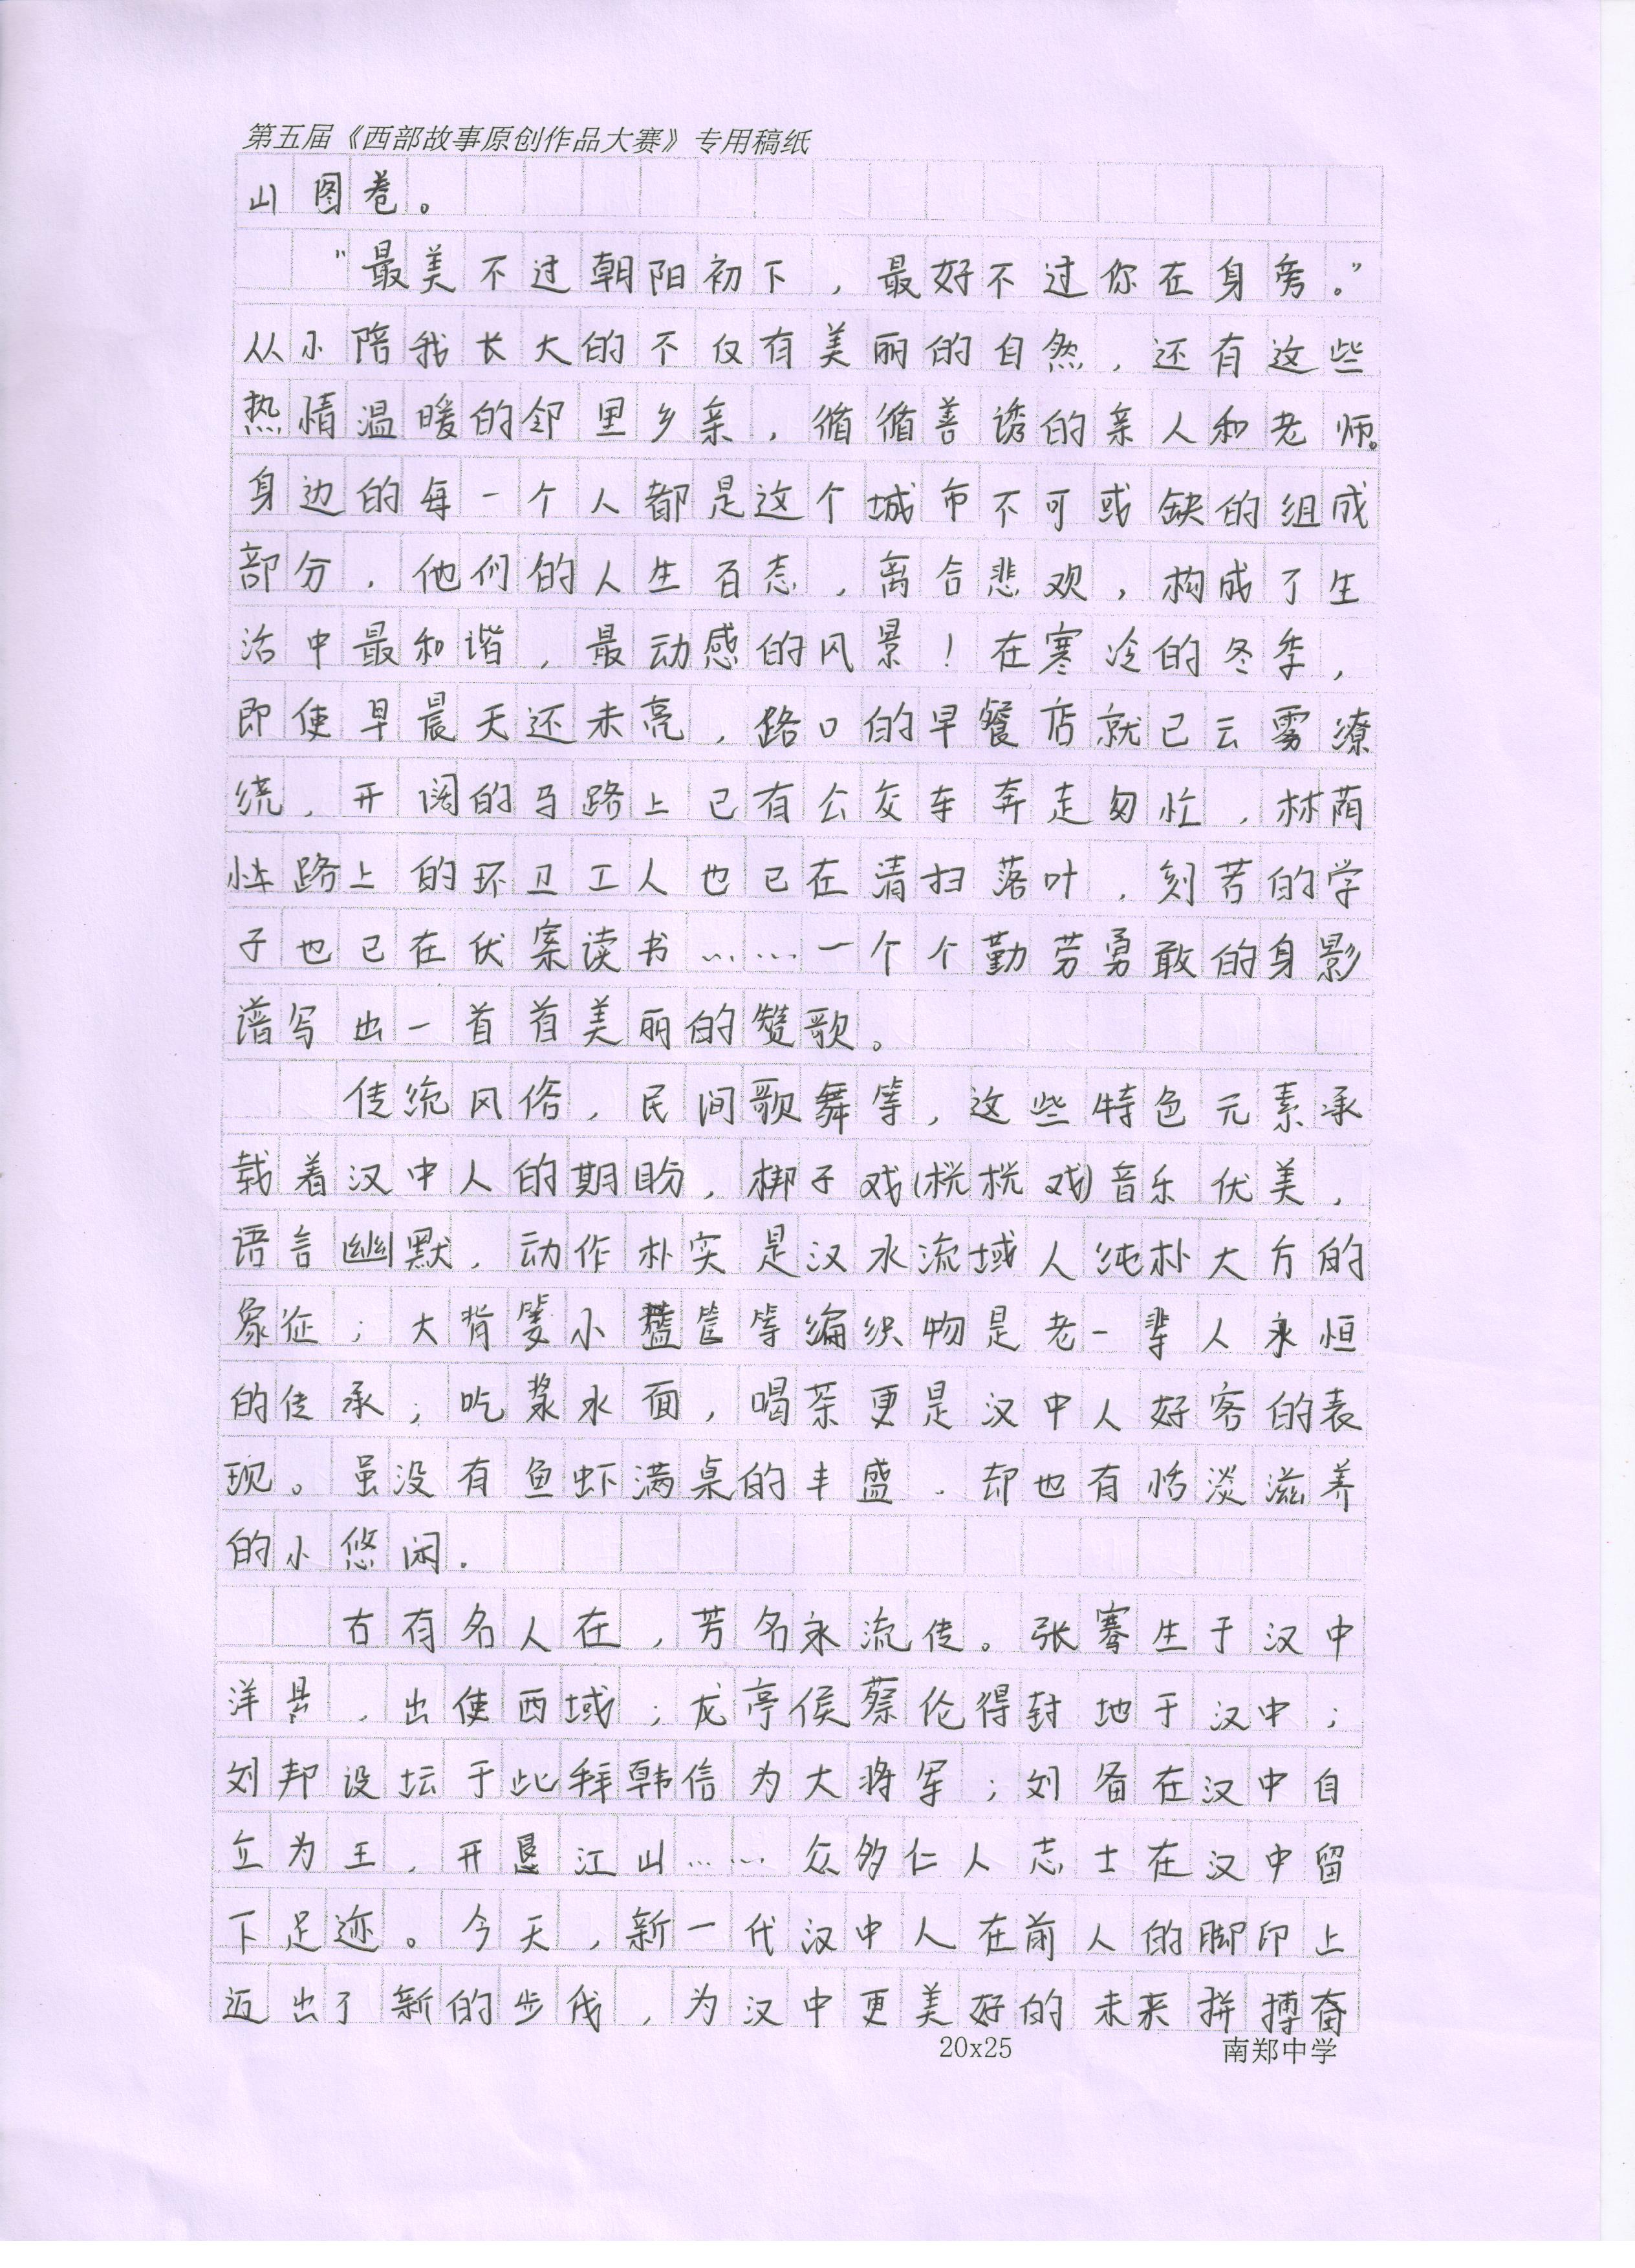 第五届《西部故事原创作品大赛》专用稿纸
山图卷。
“最美不过朝阳初下，最好不过你在身旁。”
从小陪我长大的不仅有美丽的自然，还有这些
热情温暖的邻里乡亲，循循善诱的亲人和老师。
身边的每一个人都是这个城市不可或缺的组成
部分，他们的人生百态，离合悲观，构成了生
活中最和谐，最动感的风景！在寒冷的冬季，
即使早晨天还未亮，路口的早餐店就已云雾缭
绕，开阔的马路上已有公交车奔走匆忙，林荫
性路上的环卫工人也已在清扫落叶，刻苦的学
子也已在伏案读书……一个个勤劳勇敢的身影
谱写出一首首美丽的赞歌。
传统风俗，民间歌舞等，这些特色元素承
载着汉中人的期盼，梆子戏(桄桄戏)音乐优美，
语言幽默，动作朴实是汉水流域人纯朴大方的
象征；大背篓小筐等编织物是老一辈人永恒
的传承；吃浆水面，喝茶更是汉中人好客的表
现。虽没有鱼虾满桌的丰盛，却也有恬淡滋养
的小悠闲.
古有名人在，芳名永流传。张骞生于汉中
洋县，出使西域；龙亭侯蔡伦得封地于汉中；
刘邦设坛于此拜韩信为大将军；刘备在汉中自
立为王，开垦江山……众多仁人志士在汉中留
下足迹。今天，新一代汉中人在前人的脚印上
迈出了新的步伐，为汉中更美好的未来拼搏奋
20x25 南郑中学